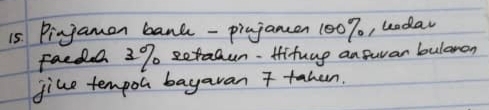 15. Pinjaman bank - pinjaman 100%, kadar
faedah 3% setahun - Hitung ansuran bulanan
jika tempoh bayaran 7 tahun.